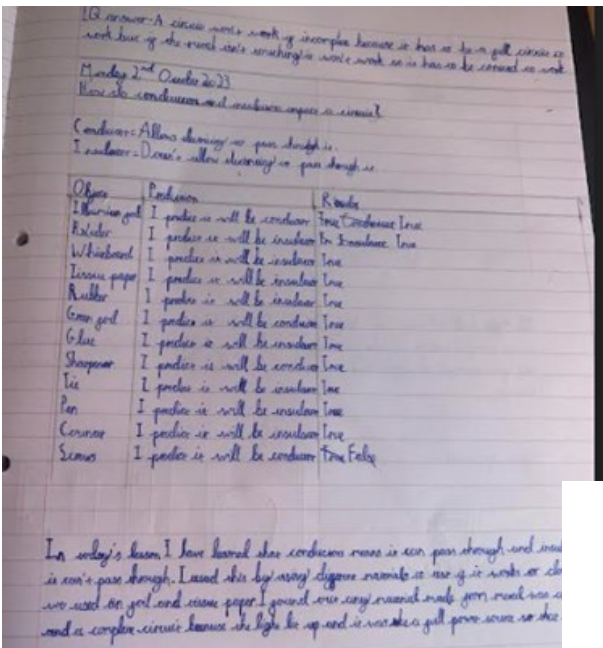 LQ answer-A circuit won't work if incomplete because it has to be a full circuit to
work but if the metal isn't touching it won't work so it has to be to work
Monday 2nd October 2023
How do conductors and insulators impact a circuit?
Conductor = Allows electricity to pass through it.
Insulator = Doesn't allow electricity to pass through it.
Object Prediction Results
I predict it will be conductor True
I predict it will be insulator True
Whiteboard I predict it will be insulator True
Tissue paper I predict it will be insulator True
Rubber I predict it will be insulator True
Green foil I predict it will be conductor True
Glue I predict it will be insulator True
Sharpener I predict it will be conductor True
Tie I predict it will be insulator True
Pen I predict it will be insulator True
I predict it will be insulator True
I predict it will be conductor False
In today's lesson I have learned that conductors means it can pass through and insul
it can't pass through. I tested this by using different materials to see if it works or
we used tin foil and tissue paper. I found out any material made from metal was
and a complete circuit because the light lit up and it was a full power source